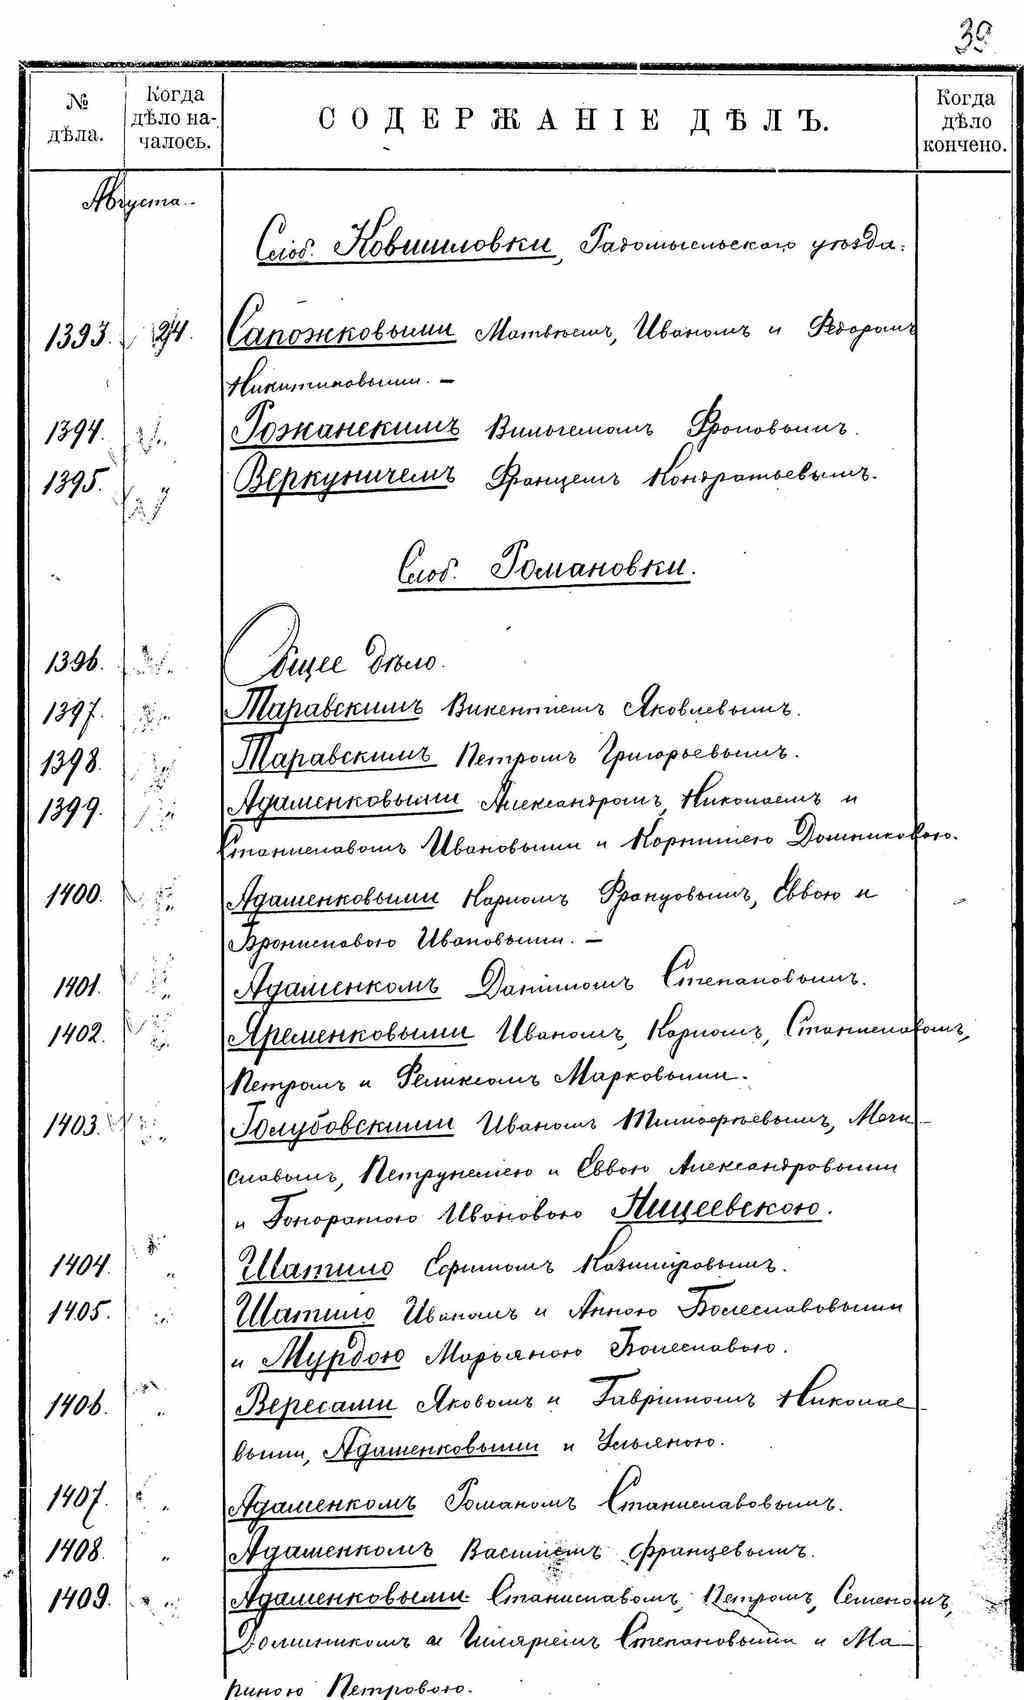 39
№ дѣла.
Когда дѣло началось.
СОДЕРЖАНІЕ ДѢЛЪ.
Когда дѣло кончено.
Августа.
Слоб. Ковшиловки, Радомысльскаго уѣзда:
1393. 24. Сапожковыми Матвѣемъ, Иваномъ и Федоромъ
Никитиновыми. —
1394. Рожанскимъ Вильгемомъ
1395. Веркуничемъ Францемъ Кондратьевымъ.
Слоб. Романовки.
1396. Общее дѣло.
1397. Таравскимъ Викентіемъ Яковлевымъ.
1398. Таравскимъ Петромъ Григорьевымъ.
1399. Адаменковыми Александромъ, Николаемъ и
Станиславомъ Ивановыми и Домниковою.
1400. Адаменковыми Карломъ Францовымъ, Еввою и
Брониславою Ивановыми. —
1401. Адаменкомъ Даніиломъ Степановымъ.
1402. Яременковыми Иваномъ, Карломъ, Станиславомъ,
Петромъ и Феликсомъ Марковыми.
1403. Голубовскими Иваномъ Тимофѣевымъ, Мечи-
славымъ, Петрунелею и Еввою Александровыми
и Гоноратою Ивановою Нищеевскою.
1404. „ Шатило Ефимомъ Казиміровымъ.
1405. „ Шатило Иваномъ и Анною Болеславовыми
и Мурдою Марьяною Болеславою.
1406. „ Вересами Яковомъ и Гавріиломъ Николае-
выми, Адаменковыми и Ульяною.
1407. „ Адаменкомъ Романомъ Станиславовымъ.
1408. „ Адаменкомъ Василіемъ Францевымъ.
1409. „ Адаменковыми Станиславомъ, Петромъ, Семеномъ,
Доминикомъ и Иляріемъ Степановыми и Ма-
риною Петровою.